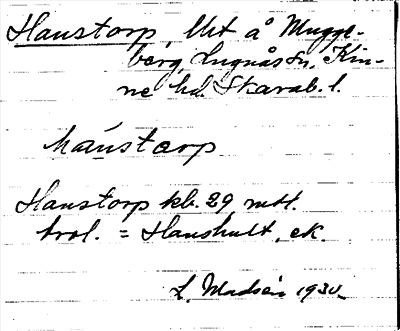 Hanstorp, Utt å Mugge-
berg, Lugnås sn, Kin-
ne hd. Skarab. l.
Hanstorp kb. 29 mtl.
trol. = Hanshult, ek.
L. Madsén 1930